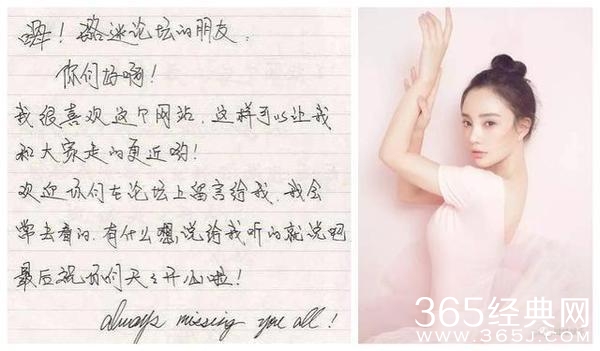 嗨！璐迷论坛的朋友，
你们好啊！
我很喜欢这个网站，这样可以让我
和大家走的更近哟！
欢迎你们在论坛上留言给我，我会
常去看的，有什么想说给我听的就说啊
最后祝你们天天开心啦！
always missing you all!
365经典网
www.365j.com